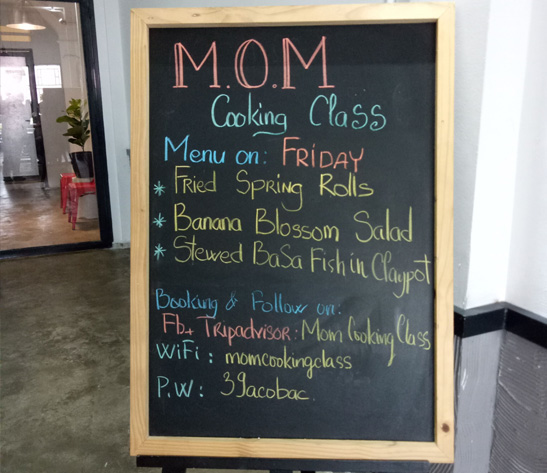 M.O.M
Cooking Class
Menu on: FRIDAY
* Fried Spring Rolls
* Banana Blossom Salad
* Stewed BaSa Fish in Claypot
Booking & Follow on:
Fb + Tripadvisor: Mom Cooking Class
WiFi: momcookingclass
P.W: 39acobac